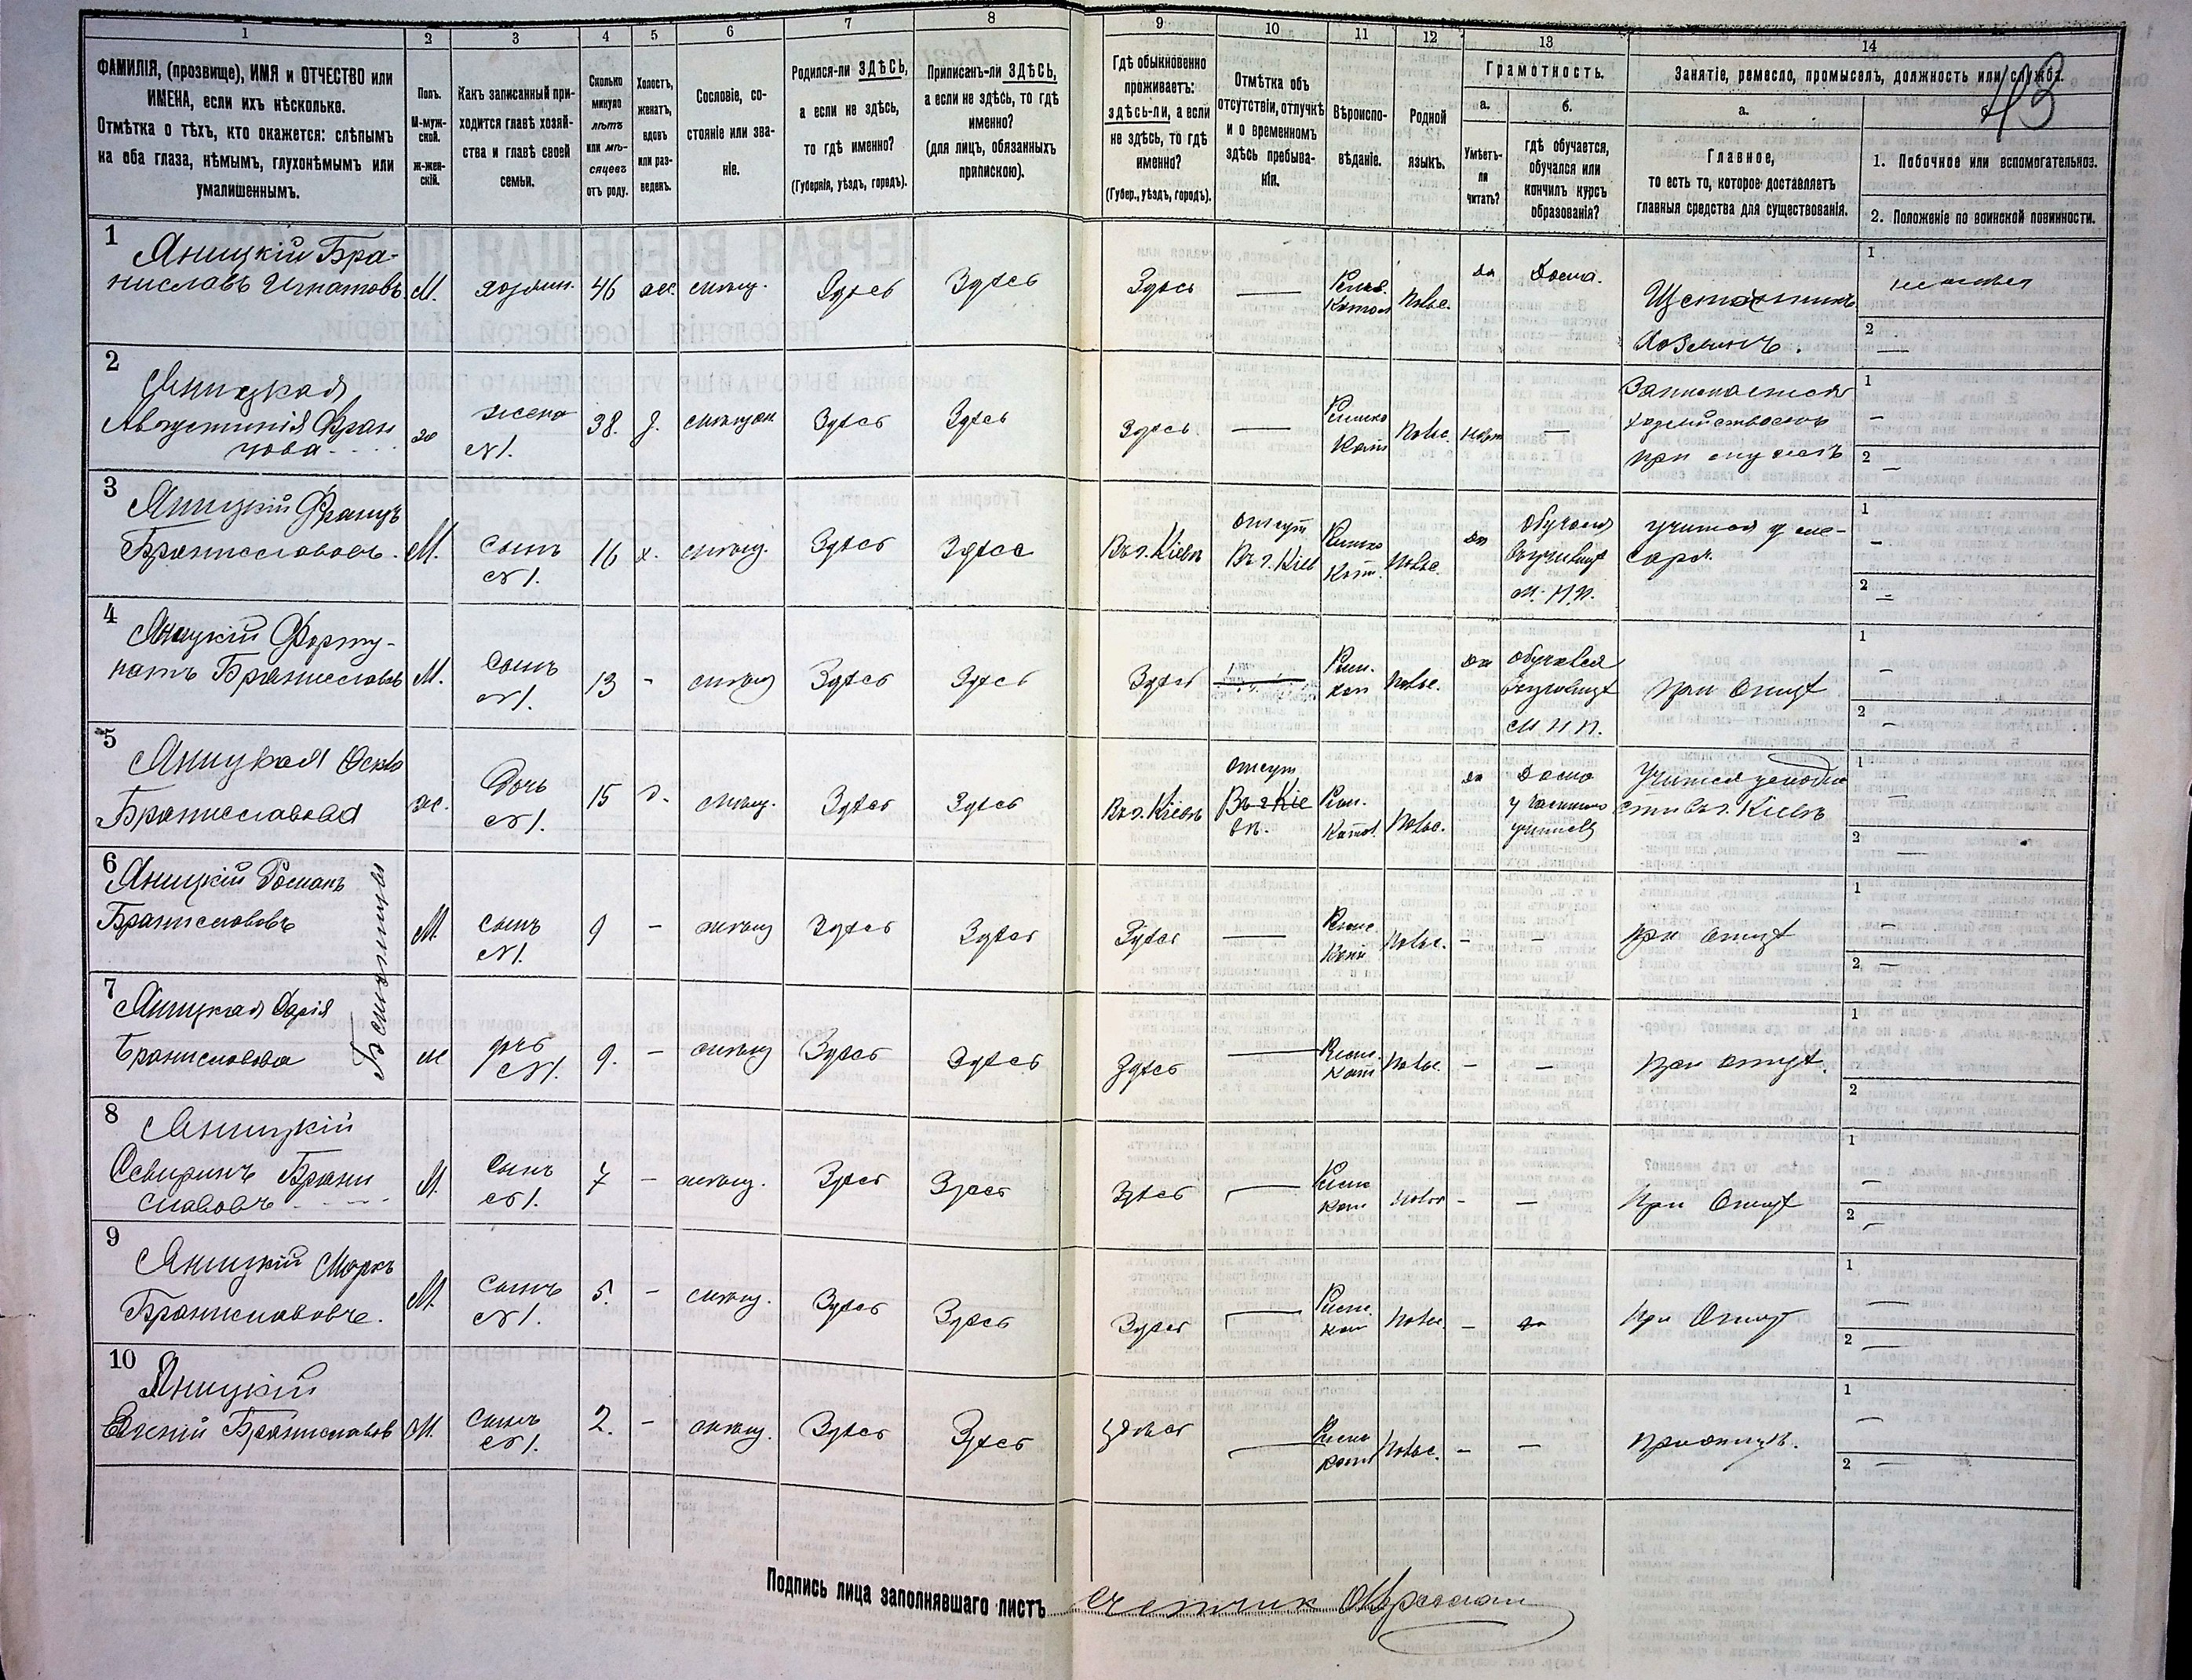 1 2 3 4 5 6 7 8 9 10 11 12 13 14
ФАМИЛІЯ, (прозвище), ИМЯ и ОТЧЕСТВО или
ИМЕНА, если ихъ нѣсколько.
Отмѣтка о тѣхъ, кто окажется: слѣпымъ
на оба глаза, нѣмымъ, глухонѣмымъ или
умалишеннымъ.
Полъ.
М-муж-
ской.
Ж-жен-
скій.
Какъ записанный при-
ходится главѣ хозяй-
ства и главѣ своей
семьи.
Сколько
минуло
лѣтъ
или мѣ-
сяцевъ
отъ роду.
Холостъ,
женатъ,
вдовъ
или раз-
веденъ.
Сословіе, со-
стояніе или зва-
ніе.
Родился-ли ЗДѢСЬ,
а если не здѣсь,
то гдѣ именно?
(Губернія, уѣздъ, городъ).
Приписанъ-ли ЗДѢСЬ,
а если не здѣсь, то гдѣ
именно?
(для лицъ, обязанныхъ
припискою).
Гдѣ обыкновенно
проживаетъ:
здѣсь-ли, а если
не здѣсь, то гдѣ
именно?
(Губер., уѣздъ, городъ).
Отмѣтка объ
отсутствіи, отлучкѣ
и о временномъ
здѣсь пребыва-
ніи.
Вѣроиспо-
вѣданіе.
Родной
языкъ.
Грамотность.
а.
Умѣетъ-
ли
читать?
б.
гдѣ обучается,
обучался или
кончилъ курсъ
образованія?
Занятіе, ремесло, промыселъ, должность или служба.
а.
Главное,
то есть то, которое доставляетъ
главныя средства для существованія.
1. Побочное или вспомогательное.
2. Положеніе по воинской повинности.
1
Яницкій Бра-
ниславъ Игнатовъ
М. хозяин. 46 жен. мѣщ. Здѣсь Здѣсь Здѣсь — Римс. Катол Польс. да Дома.
Хозяинъ.
1
не имеет
2 —
2
Яницкая
Августинія Фран
цова
ж жена
№1. 38. З. мѣщан. Здѣсь Здѣсь Здѣсь — Римско Катол Польс. Нѣтъ —
Занимается
хозяйствомъ
при мужѣ
1 —
2 —
3
Яницкій Францъ
Браниславовъ.
М. Сынъ
№1. 16 х. мѣщ. Здѣсь Здѣсь Въ г. Кіевѣ отсут
Въ г. Кіев Римско Кат. Польс. да обучался
въ училищѣ
М. Н. П.
учится у сле-
саря.
1 —
2 —
4
Яницкій Форту-
натъ Браниславовъ
М. Сынъ
№1. 13 - мѣщ Здѣсь Здѣсь Здѣсь — Рим.
кат Польс. да обучался
въ училищѣ
М Н П.
при отцѣ
1 —
2 —
5
Яницкая
Браниславова
ж. Дочь
№1. 15 д. мѣщ. Здѣсь Здѣсь Въ г. Кіевѣ отсут
Въ г Кіе
вѣ. Рим.
Катол. Польс. да дома
у частного
учителя
Учится
въ г. Кіевѣ
1 —
2 —
6
Яницкій Романъ
Браниславовъ
Близнецы
М. сынъ
№1. 9 - мѣщ Здѣсь Здѣсь Здѣсь — Римс.
Кат Польс. - - при отцѣ
1 —
2 —
7
Яницкая Марія
Браниславова
ж дочь
№1. 9. - мѣщ Здѣсь Здѣсь Здѣсь — Римс.
Кат Польс. — — При отцѣ.
1 —
2
8
Яницкій
Северинъ Брани
славовъ
М. Сынъ
№1. 7 - мѣщ. Здѣсь Здѣсь Здѣсь — Римс
Кат Польс - — При Отцѣ
1 —
2 —
9
Яницкій Маркъ
Браниславовъ.
М. Сынъ
№1. 5. - мѣщ. Здѣсь Здѣсь Здѣсь — Римс.
кат Польс. — — При Отцѣ
1 —
2 —
10
Яницкій
Евгеній Браниславов
М. Сынъ
№1. 2. - мѣщ. Здѣсь Здѣсь Здѣсь — Римс
кат Польс. — — При отцѣ.
1 —
2 —
Подпись лица заполнявшаго листъ Счетчик